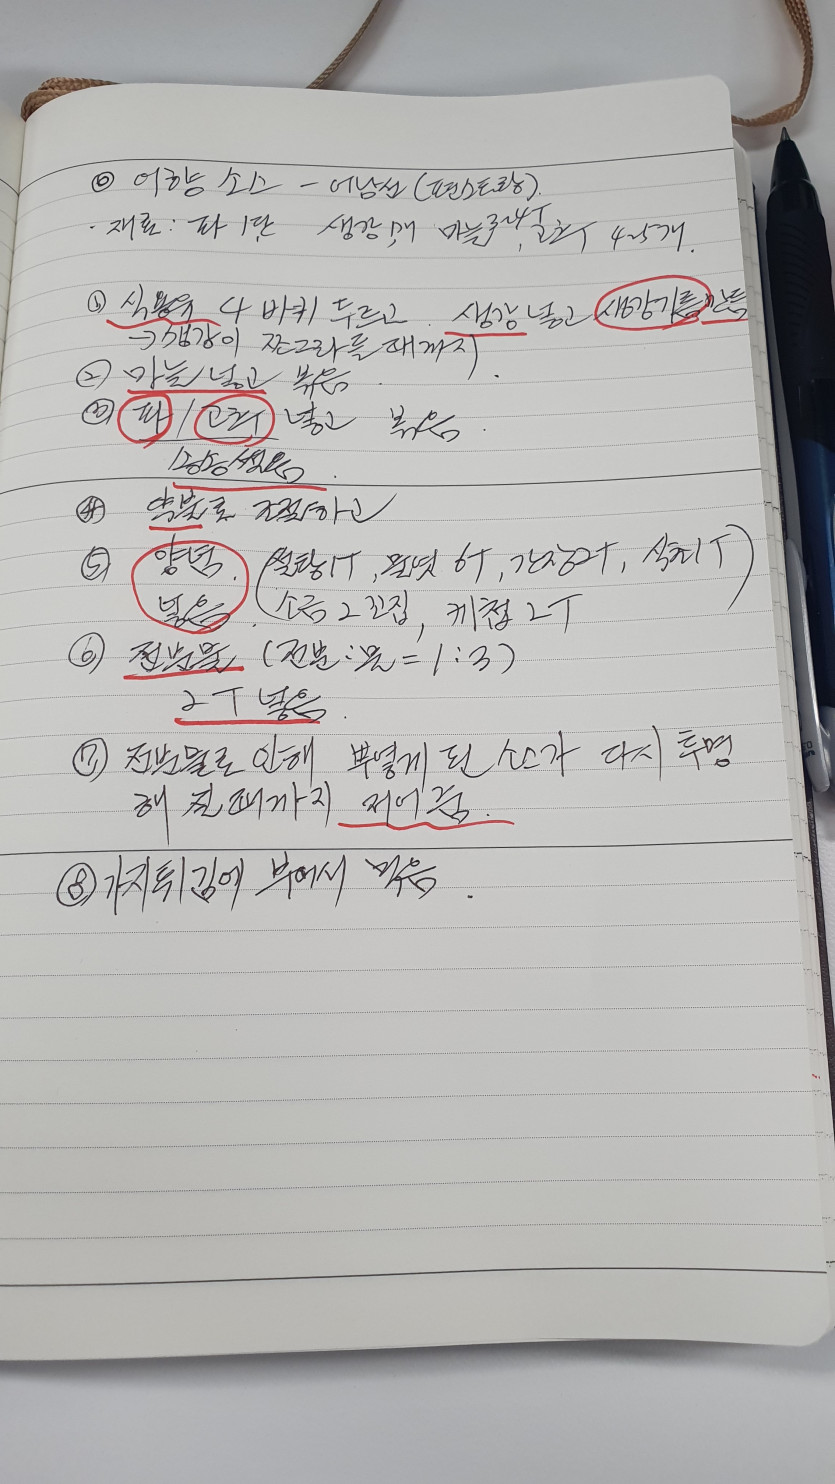 ◎ 어향 소스 - 어남선 (편스토랑).
· 재료: 파 1단 생강 1개 마늘 4T, 고추 4~5개.
① 식용유 4바퀴 두르고. 생강 넣고 생강기름 만듦
→ 생강이 쪼그라들때까지.
② 마늘 넣고 볶음.
③ 파 / 고추 넣고 볶음.
송송 썰음.
④ 약불로 조절하고
⑤ 양념. (설탕 1T, 물엿 6T, 간장 2T, 식초 1T
넣음. 소금 2꼬집, 케첩 2T)
⑥ 전분물 (전분:물 = 1:3)
2T 넣음.
⑦ 전분물로 인해 뿌옇게 된 소스가 다시 투명
해질때까지 저어줌.
⑧ 가지튀김에 부어서 먹음.